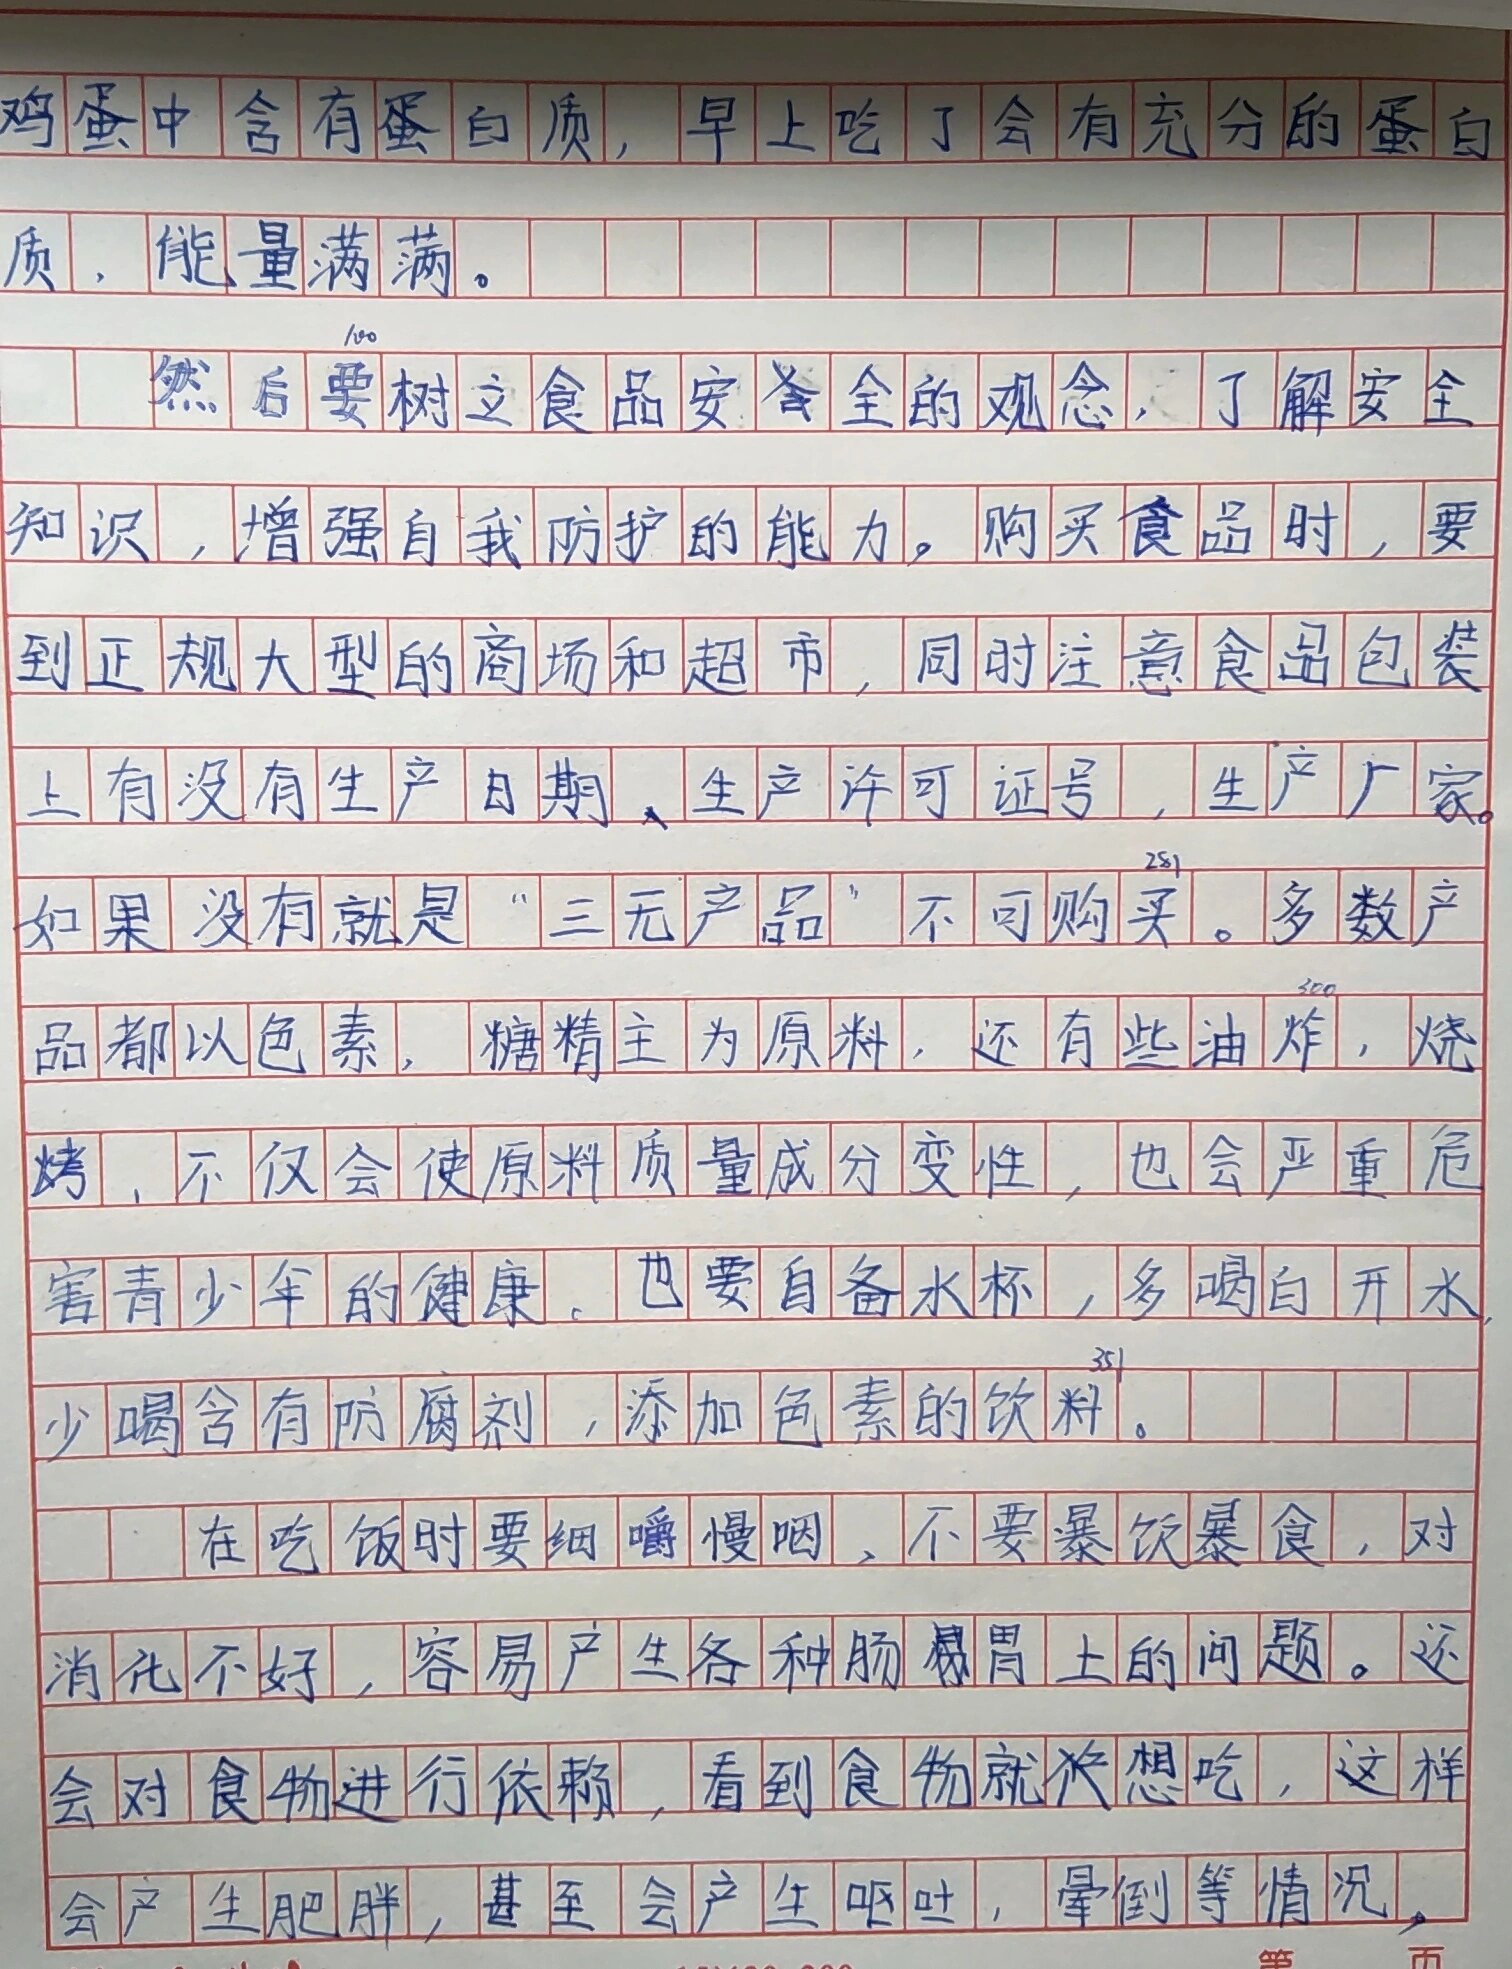 鸡蛋中含有蛋白质，早上吃了会有充分的蛋白
质，能量满满。
100
然后要树立食品安全的观念，了解安全
知识，增强自我防护的能力。购买食品时，要
到正规大型的商场和超市，同时注意食品包装
上有没有生产日期、生产许可证号，生产厂家。
281
如果没有就是“三无产品”不可购买。多数产
300
品都以色素，糖精主为原料，还有些油炸，烧
烤，不仅会使原料质量成分变性，也会严重危
害青少年的健康。也要自备水杯，多喝白开水，
351
少喝含有防腐剂，添加色素的饮料。
在吃饭时要细嚼慢咽，不要暴饮暴食，对
消化不好，容易产生各种肠胃上的问题。还
会对食物进行依赖，看到食物就想吃，这样
会产生肥胖，甚至会产生呕吐，晕倒等情况。
第 页